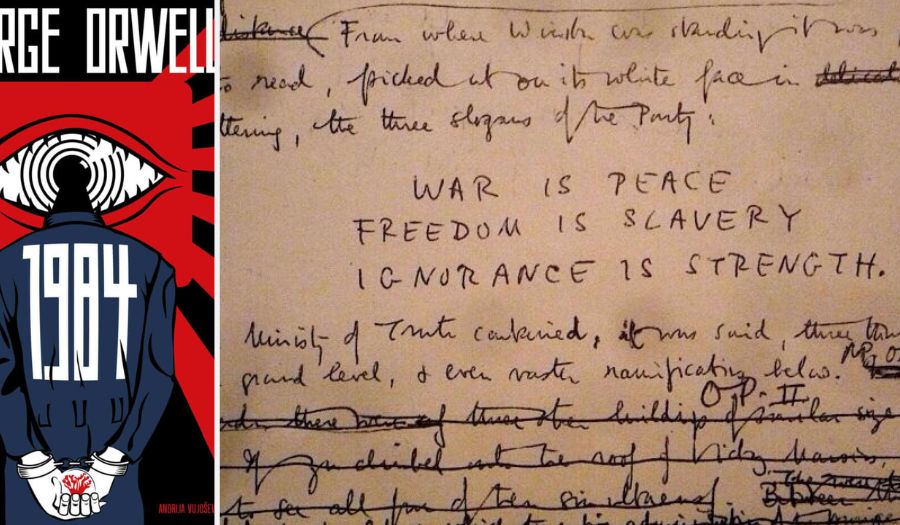 RGE ORWELL
1984
ANDRIJA VUJOŠEV
distance From where Winston was standing it was
to read, picked out on its white face in
ttering, the three slogans of the Party:
WAR IS PEACE
FREEDOM IS SLAVERY
IGNORANCE IS STRENGTH.
Ministry of Truth contained, it was said, three
ground level, & even vaster ramifications below.
O.P. II
there were three other buildings of similar size
If you climbed onto the roof of Victory Mansions,
to see all four of them simultaneously. Between